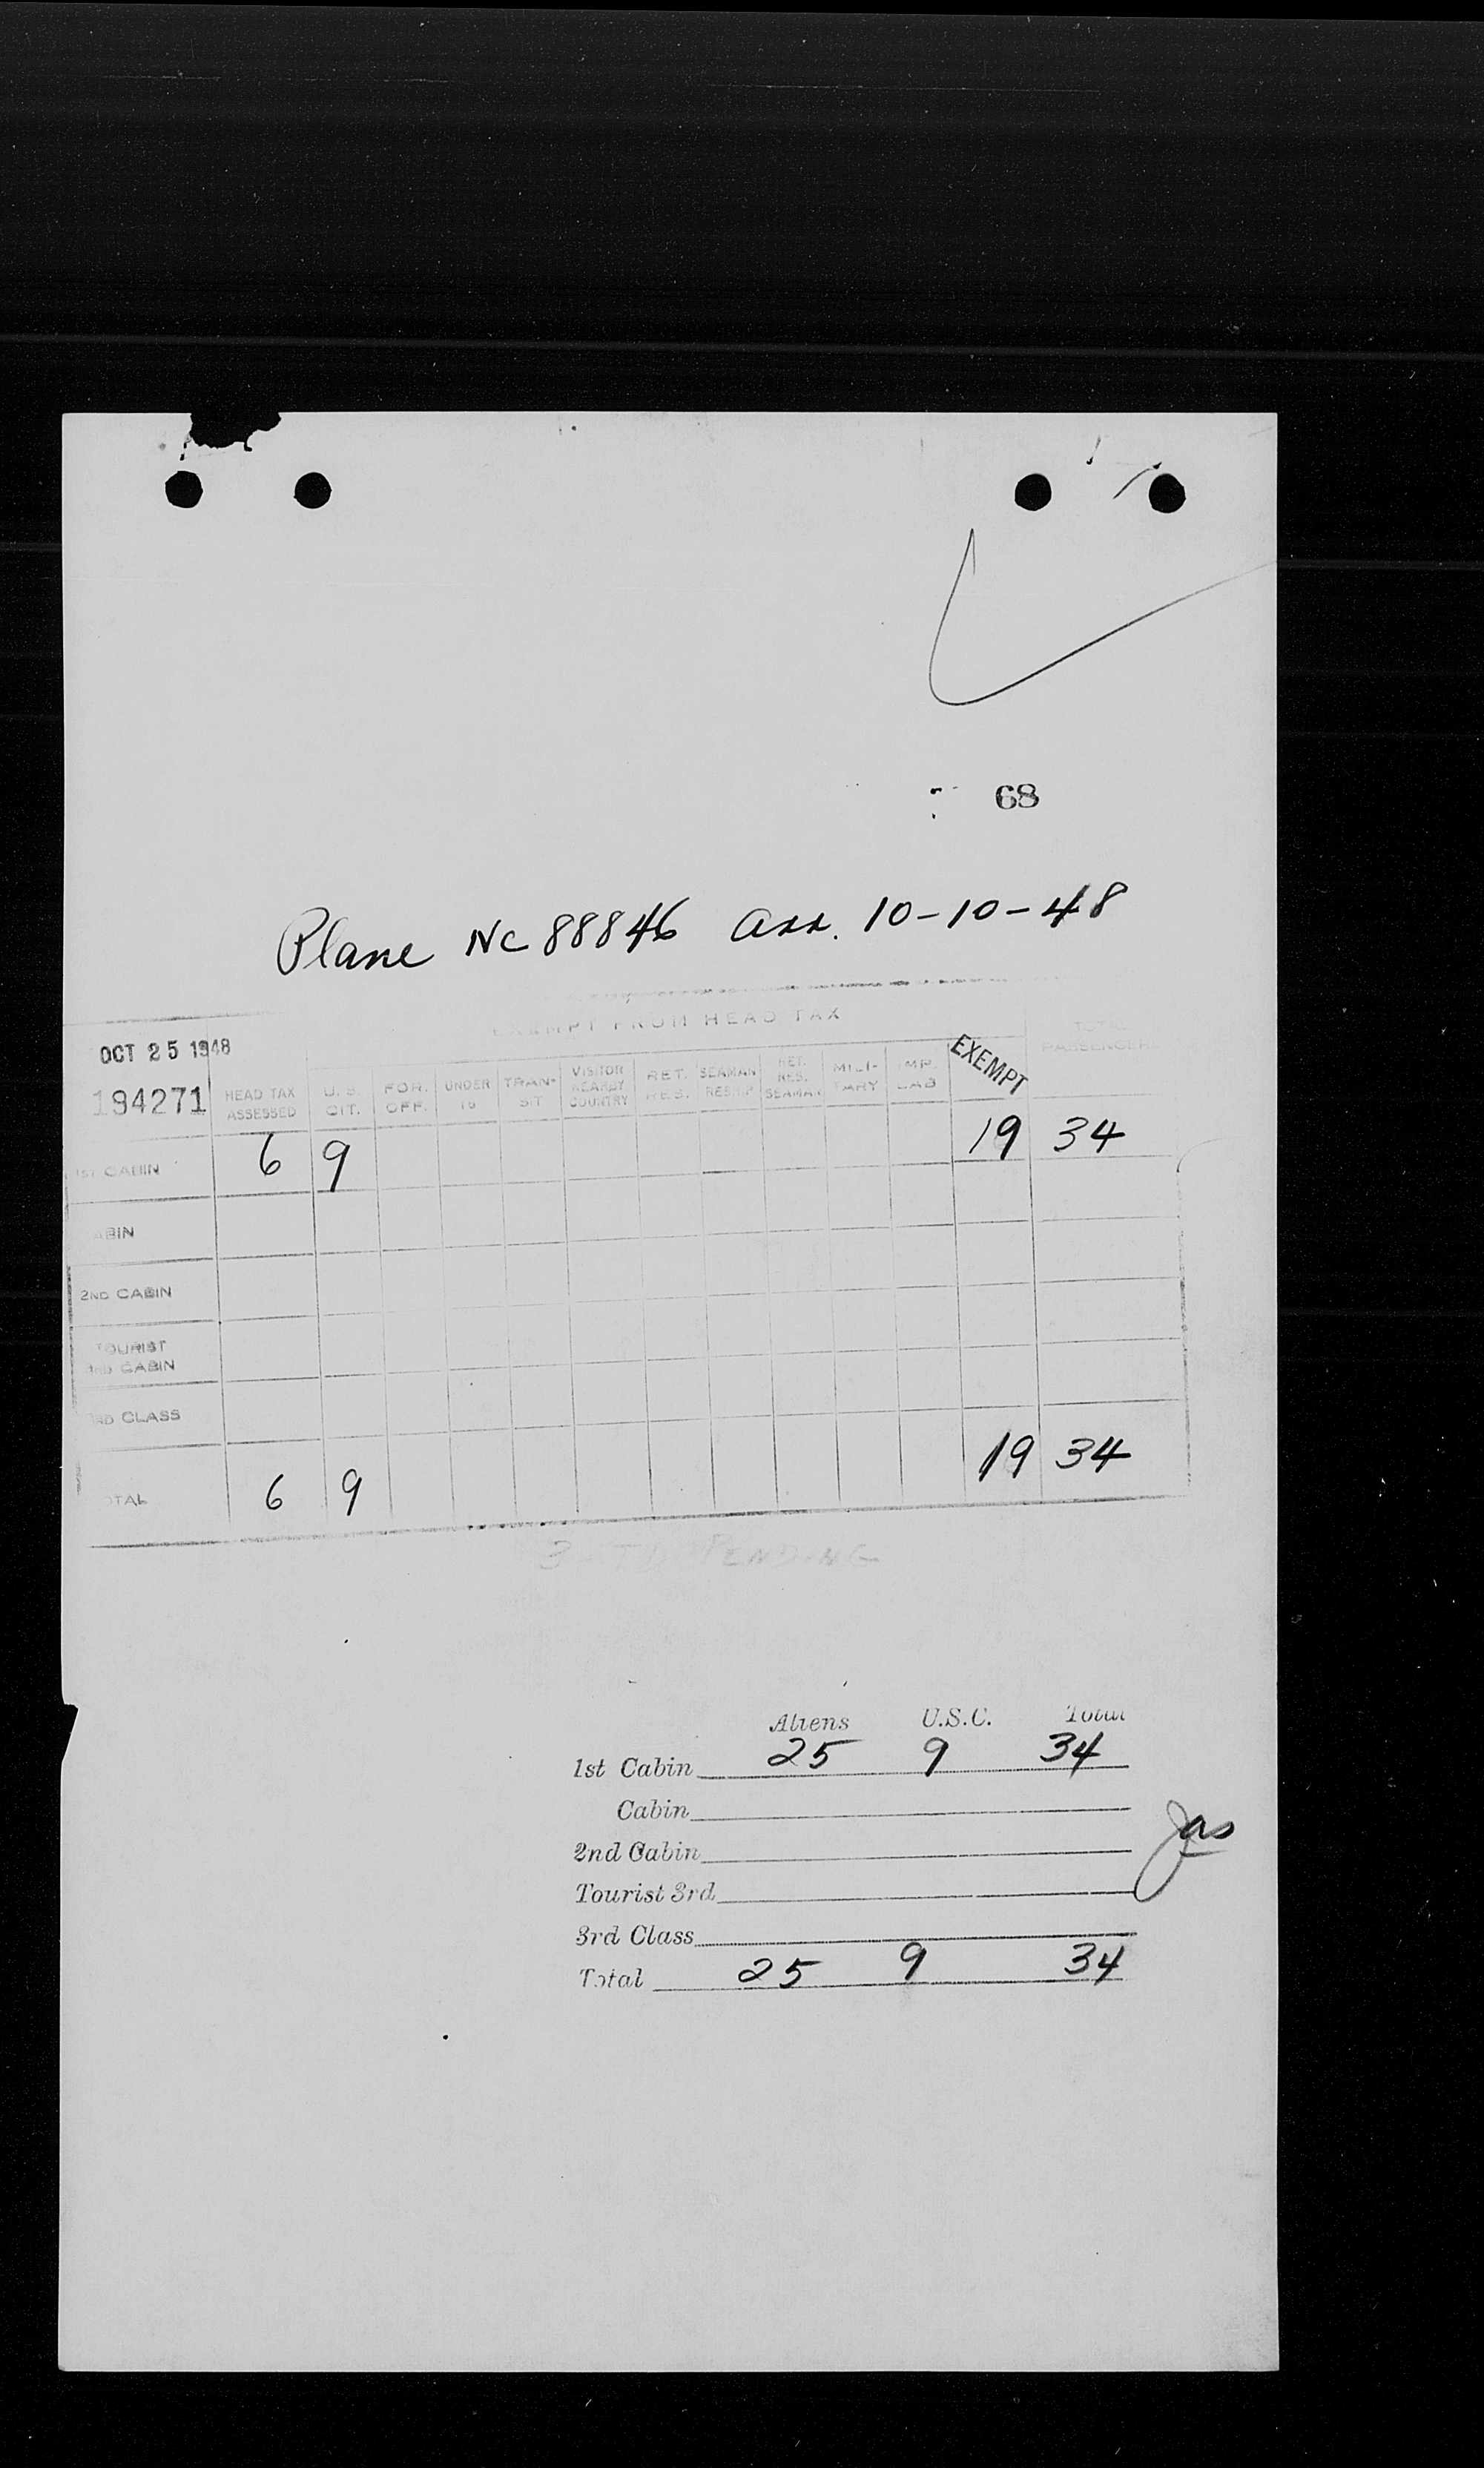 68
Plane NC 88846 arr. 10-10-48
EXEMPT FROM HEAD TAX
OCT 25 1948
194271
HEAD TAX ASSESSED
U. S. CIT.
FOR. OFF.
UNDER 16
TRAN-SIT
VISITOR NEARBY COUNTRY
RET. RES.
SEAMAN RESHIP
RET. RES. SEAMAN
MILI-TARY
IMP. LAB
EXEMPT
TOTAL PASSENGERS
1ST CABIN 6 9 19 34
CABIN
2ND CABIN
TOURIST
3RD CABIN
3RD CLASS
TOTAL 6 9 19 34
PENDING
Aliens U.S.C. Total
1st Cabin 25 9 34
Cabin
2nd Cabin
Tourist 3rd
3rd Class
Total 25 9 34